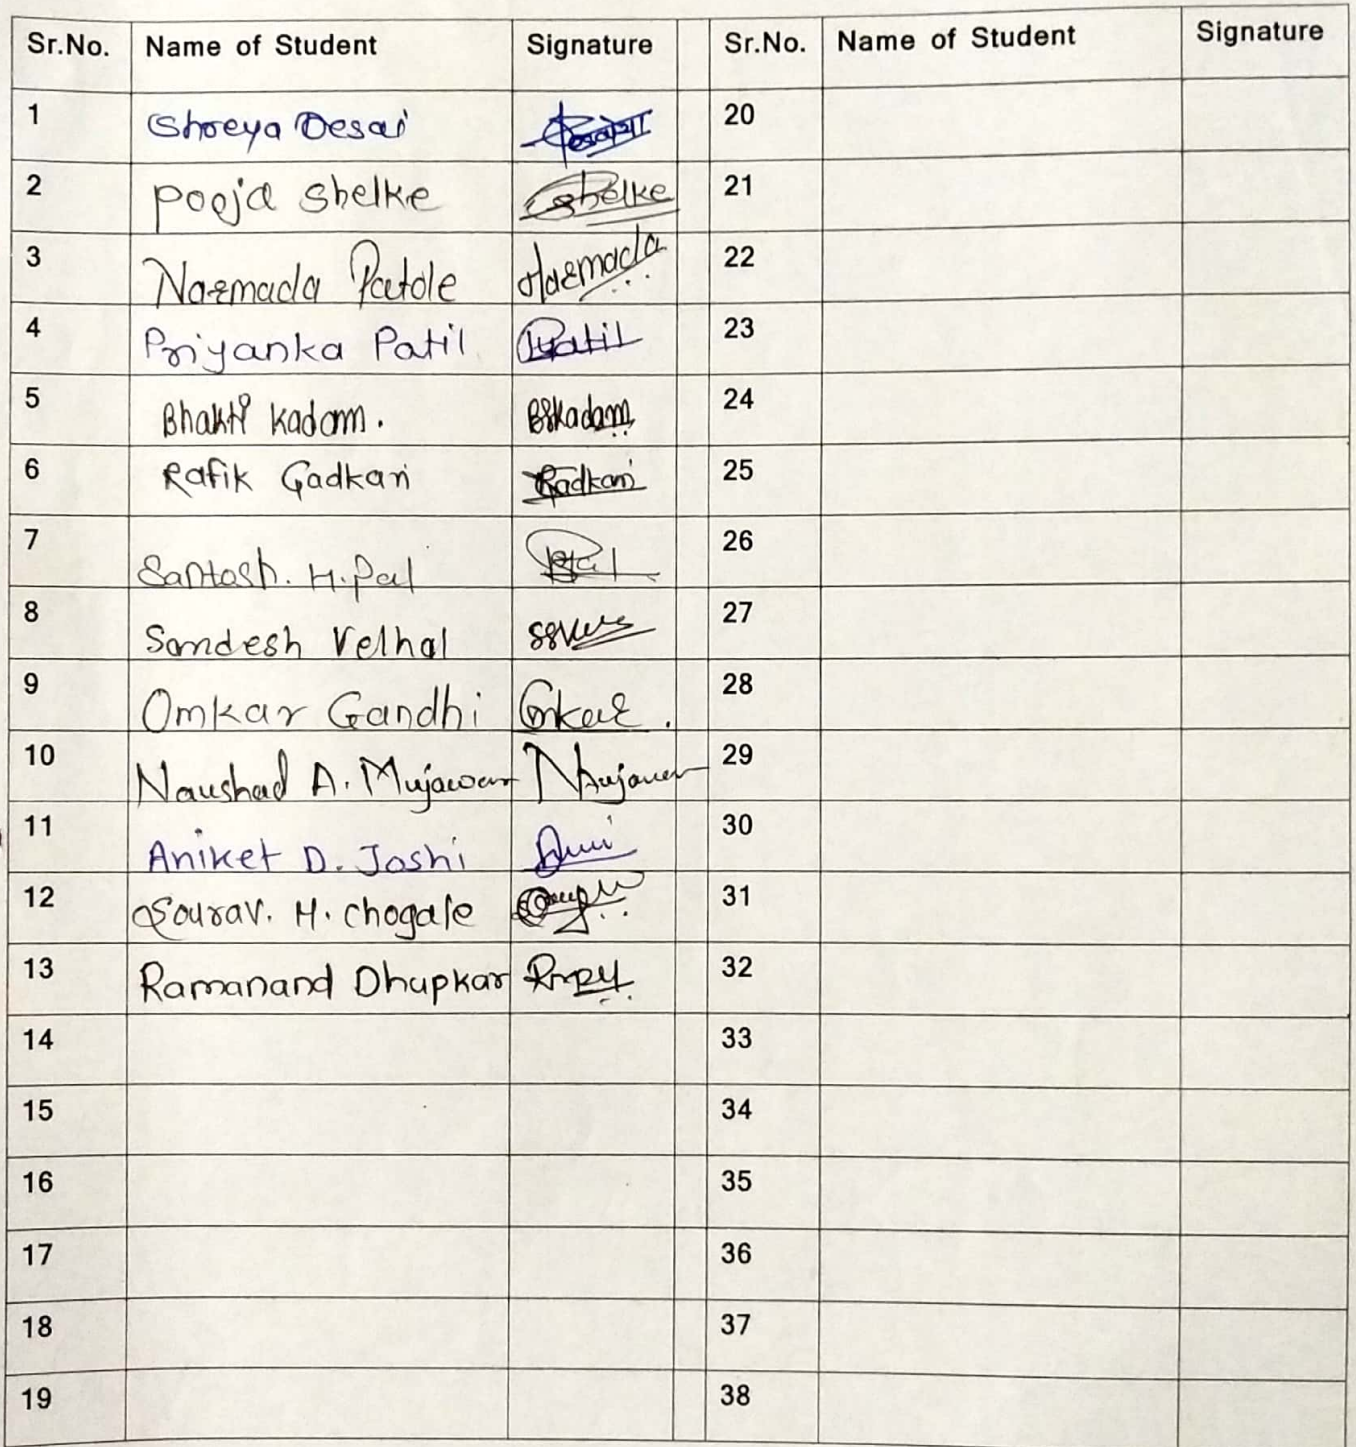 Sr.No. Name of Student Signature Sr.No. Name of Student Signature
1 Shreya Desai 20
2 Pooja Shelke Shelke 21
3 Narmada Patole Narmada 22
4 Priyanka Patil Patil 23
5 Bhakti Kadam. BSKadam 24
6 Rafik Gadkari Gadkari 25
7 Santosh. H. Pal Pal 26
8 Sandesh Velhal 27
9 Omkar Gandhi Omkar. 28
10 Naushad A. Mujawar NMujawar 29
11 Aniket D. Joshi 30
12 Sourav. H. Chogale 31
13 Ramanand Dhupkar 32
14 33
15 34
16 35
17 36
18 37
19 38